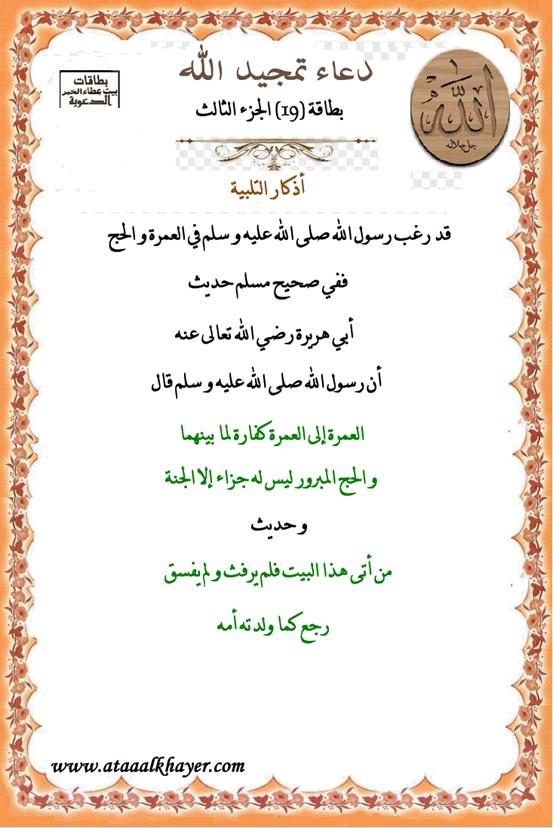 دعاء تمجيد الله
بطاقات
بيت عطاء الخير
الدعوية
الله
جل جلاله
بطاقة (19) الجزء الثالث
أذكار التلبية
قد رغب رسول الله صلى الله عليه وسلم في العمرة والحج
ففي صحيح مسلم حديث
أبي هريرة رضي الله تعالى عنه
أن رسول الله صلى الله عليه وسلم قال
العمرة إلى العمرة كفارة لما بينهما
والحج المبرور ليس له جزاء إلا الجنة
وحديث
من أتى هذا البيت فلم يرفث ولم يفسق
رجع كما ولدته أمه
www.ataaalkhayer.com